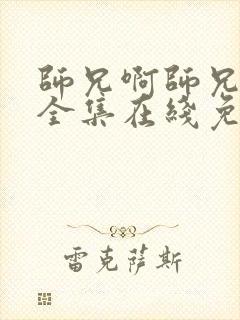 師兄啊師兄
全集在綫免
雷克萨斯